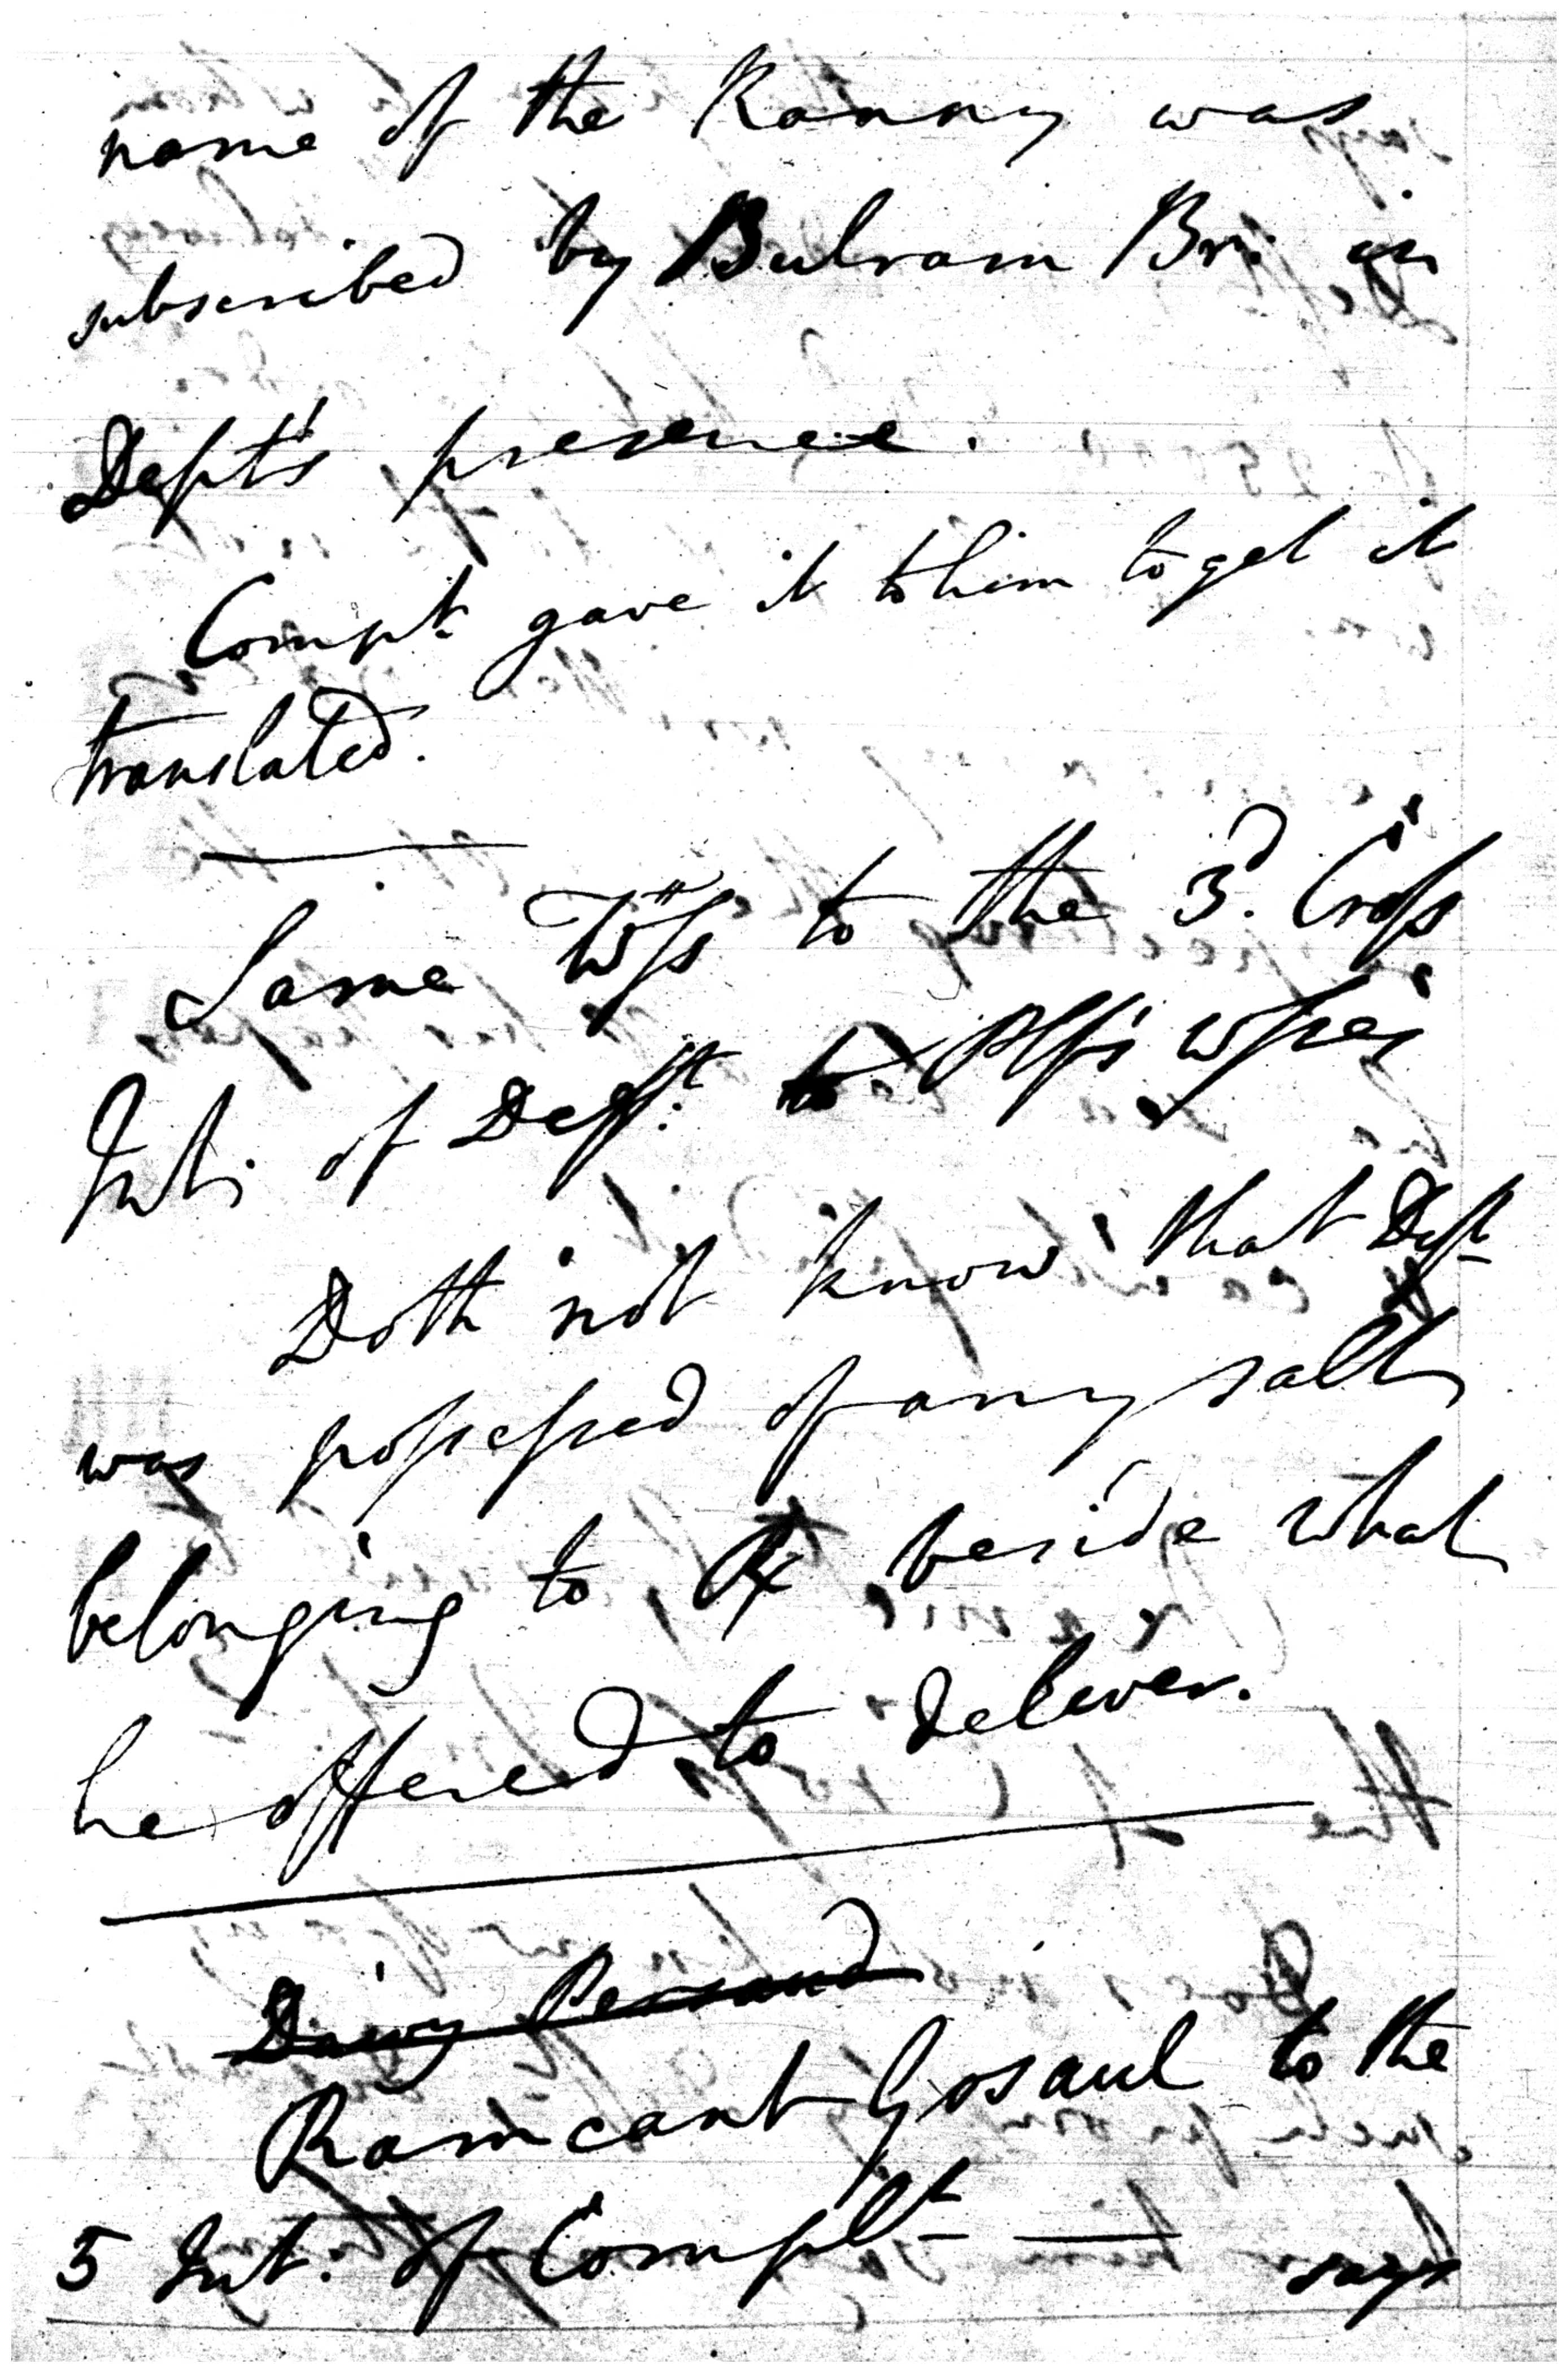 name of the Ranny was
subscribed by Bulram Br: in
Dept's presence.
Compt. gave it to him to get it
translated.
Same Wss to the 3d. Cross
Int: of Defft. to Plf's
Doth not know that Deft
was possessed of any salt
belonging to beside what
he offered to deliver.
Ramcant Gosaul to the
5 Int. of Complt — says